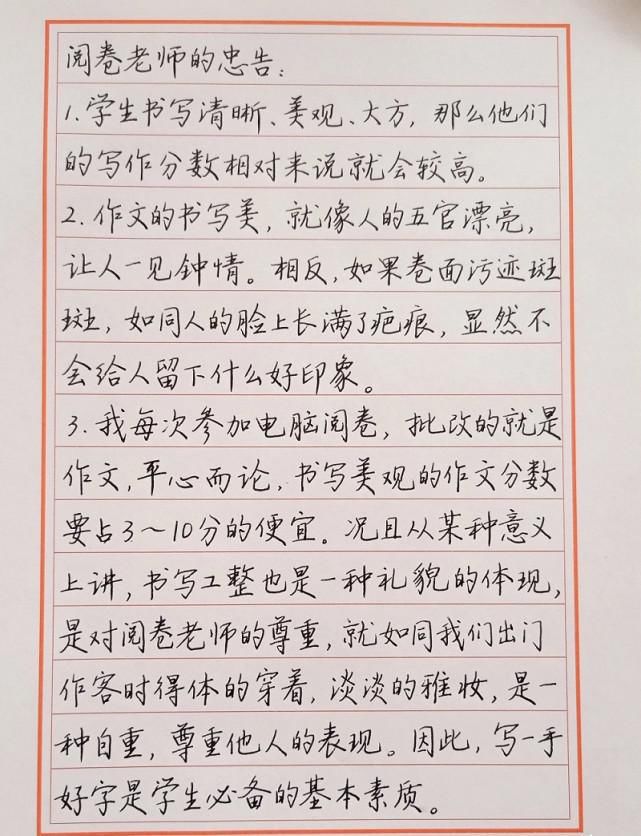 阅卷老师的忠告：
1.学生书写清晰、美观、大方，那么他们
的写作分数相对来说就会较高。
2.作文的书写美，就像人的五官漂亮，
让人一见钟情。相反，如果卷面污迹斑
斑，如同人的脸上长满了疤痕，显然不
会给人留下什么好印象。
3.我每次参加电脑阅卷，批改的就是
作文，平心而论，书写美观的作文分数
要占3～10分的便宜。况且从某种意义
上讲，书写工整也是一种礼貌的体现，
是对阅卷老师的尊重，就如同我们出门
作客时得体的穿着，淡淡的雅妆，是一
种自重，尊重他人的表现。因此，写一手
好字是学生必备的基本素质。